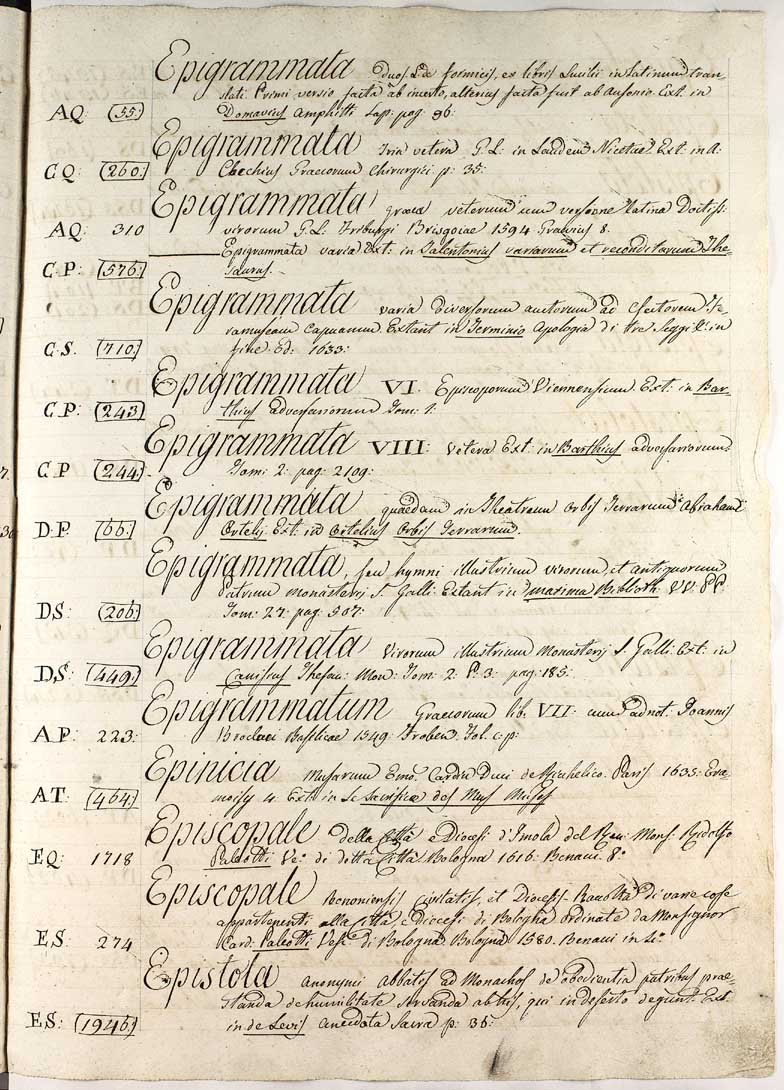 Epigrammata duos L. de formicis, ex libris Lucilii in latinum tran
slati. Primi versio facta ab incerto, alterius facta fuit ab Ausonio. Ext. in
AQ: (55:) Domavius Amphitti Sap: pag: 96:
Epigrammata tria vetera G.L: in Laudem Nicetae. Ext. in A:
CQ: (260:) Chechius Graecorum Chirurgici p: 35:
Epigrammata graeca veterum cum versione Latina Doctiss:
AQ: 310 virorum G.L. Friburgi Brisgoiae 1594 Gravius 8.
Epigrammata varia Ext: in Salentonius variarum et reconditarum The-
C.P: (576:) saurus.
Epigrammata varia diversorum auctorum ad Caesarem Fe
ramuseam Capuanum. Extant in Terminio Apologia di tre Seggi &: in
C.S. (710:) fine. Ed: 1633:
Epigrammata VI. Episcoporum Viennensium. Ext: in Bar-
C.P: (243) thius adversariorum Tom: 1.
Epigrammata VIII: Vetera Ext: in Barthius adversariorum.
C.P (244:) Tom: 2: pag: 2109:
Epigrammata quaedam in Theatrum Orbis Terrarum Abrahami
D.P. (66:) Ortelij Ext: in Ortelius Orbis Terrarum.
Epigrammata, seu hymni illustrium virorum et antiquorum
Patrum Monasterij S. Galli: Extant in maxima Biblioth. VV: PP.
DS: (206:) Tom: 27: pag: 507:
Epigrammata Virorum illustrium Monasterij S. Galli: Ext: in
D,S: (449:) Canisius Thesau: Mon: Tom: 2: P: 3: pag: 185:
Epigrammatum Graecorum lib: VII: cum adnot. Joannis
AP: 223: Brodaei Basileae 1549: Froben. Fol. c.p:
Epinicia Musarum Emo: Cardli Duci de Richelieo. Paris 1635: Cra-
AT: (464:) moisy 4. Ext: in Le Sacrifice des Mus Muses
Episcopale della Città e Diocesi d'Imola del Rev: Mons: Ridolfo
EQ: 1718 Paleotti Ve: di ditta Città Bologna 1616: Benacci 8:
Episcopale Bononiensis civitatis, et Diocesis. Raccolta di varie cose
appartenenti alla Città, e Diocesi di Bologna ordinata da Monsignor
ES: 274 Card: Paleotti Vesc: di Bologna. Bologna 1580. Benacci in 4:
Epistola anonymi abbatis ad Monachos de obedientia patribus prae-
standa de humilitate servanda ab his, qui in deserto degunt. Ext:
ES: (1946:) in de Levis Anecdota Sacra p: 36: